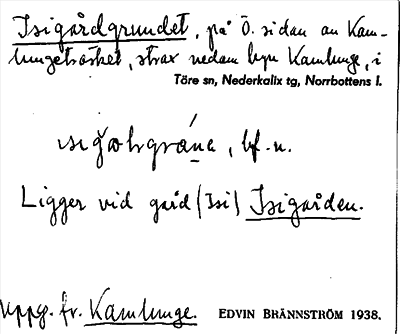 Isigårdgrundet, på ö. sidan av Kam-
lungeträsket, strax nedan byn Kamlunge, i
Töre sn, Nederkalix tg, Norrbottens l.
bf. n.
Ligger vid gård (Isi) Isigården.
Uppg. fr. Kamlunge. EDVIN BRÄNNSTRÖM 1938.